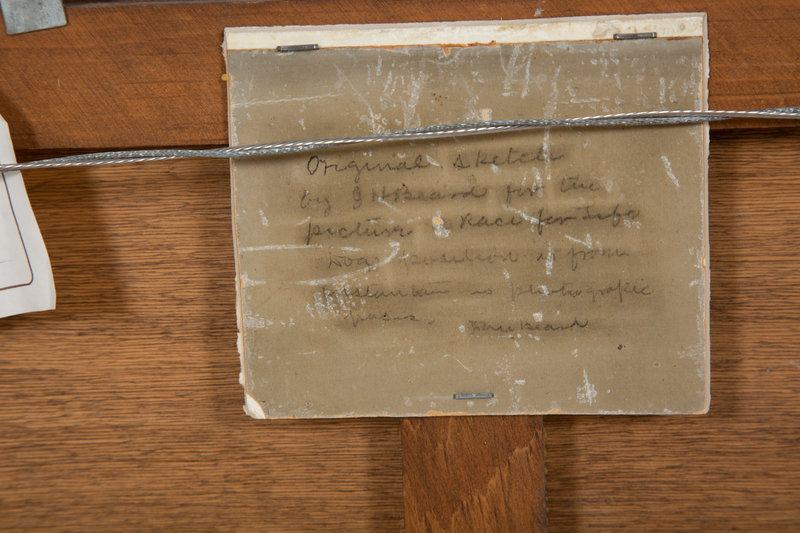 Original Sketch
by J H Beard for the
picture Race for Life
Dog position is from
instantan photografic
Beard